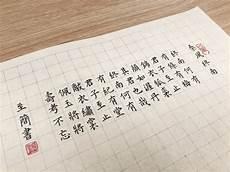 秦風
終南
終南何有
有條有梅
君子至止
錦衣狐裘
顏如渥丹
其君也哉
終南何有
有紀有堂
君子至止
黻衣繡裳
佩玉將將
壽考不忘
至簡書